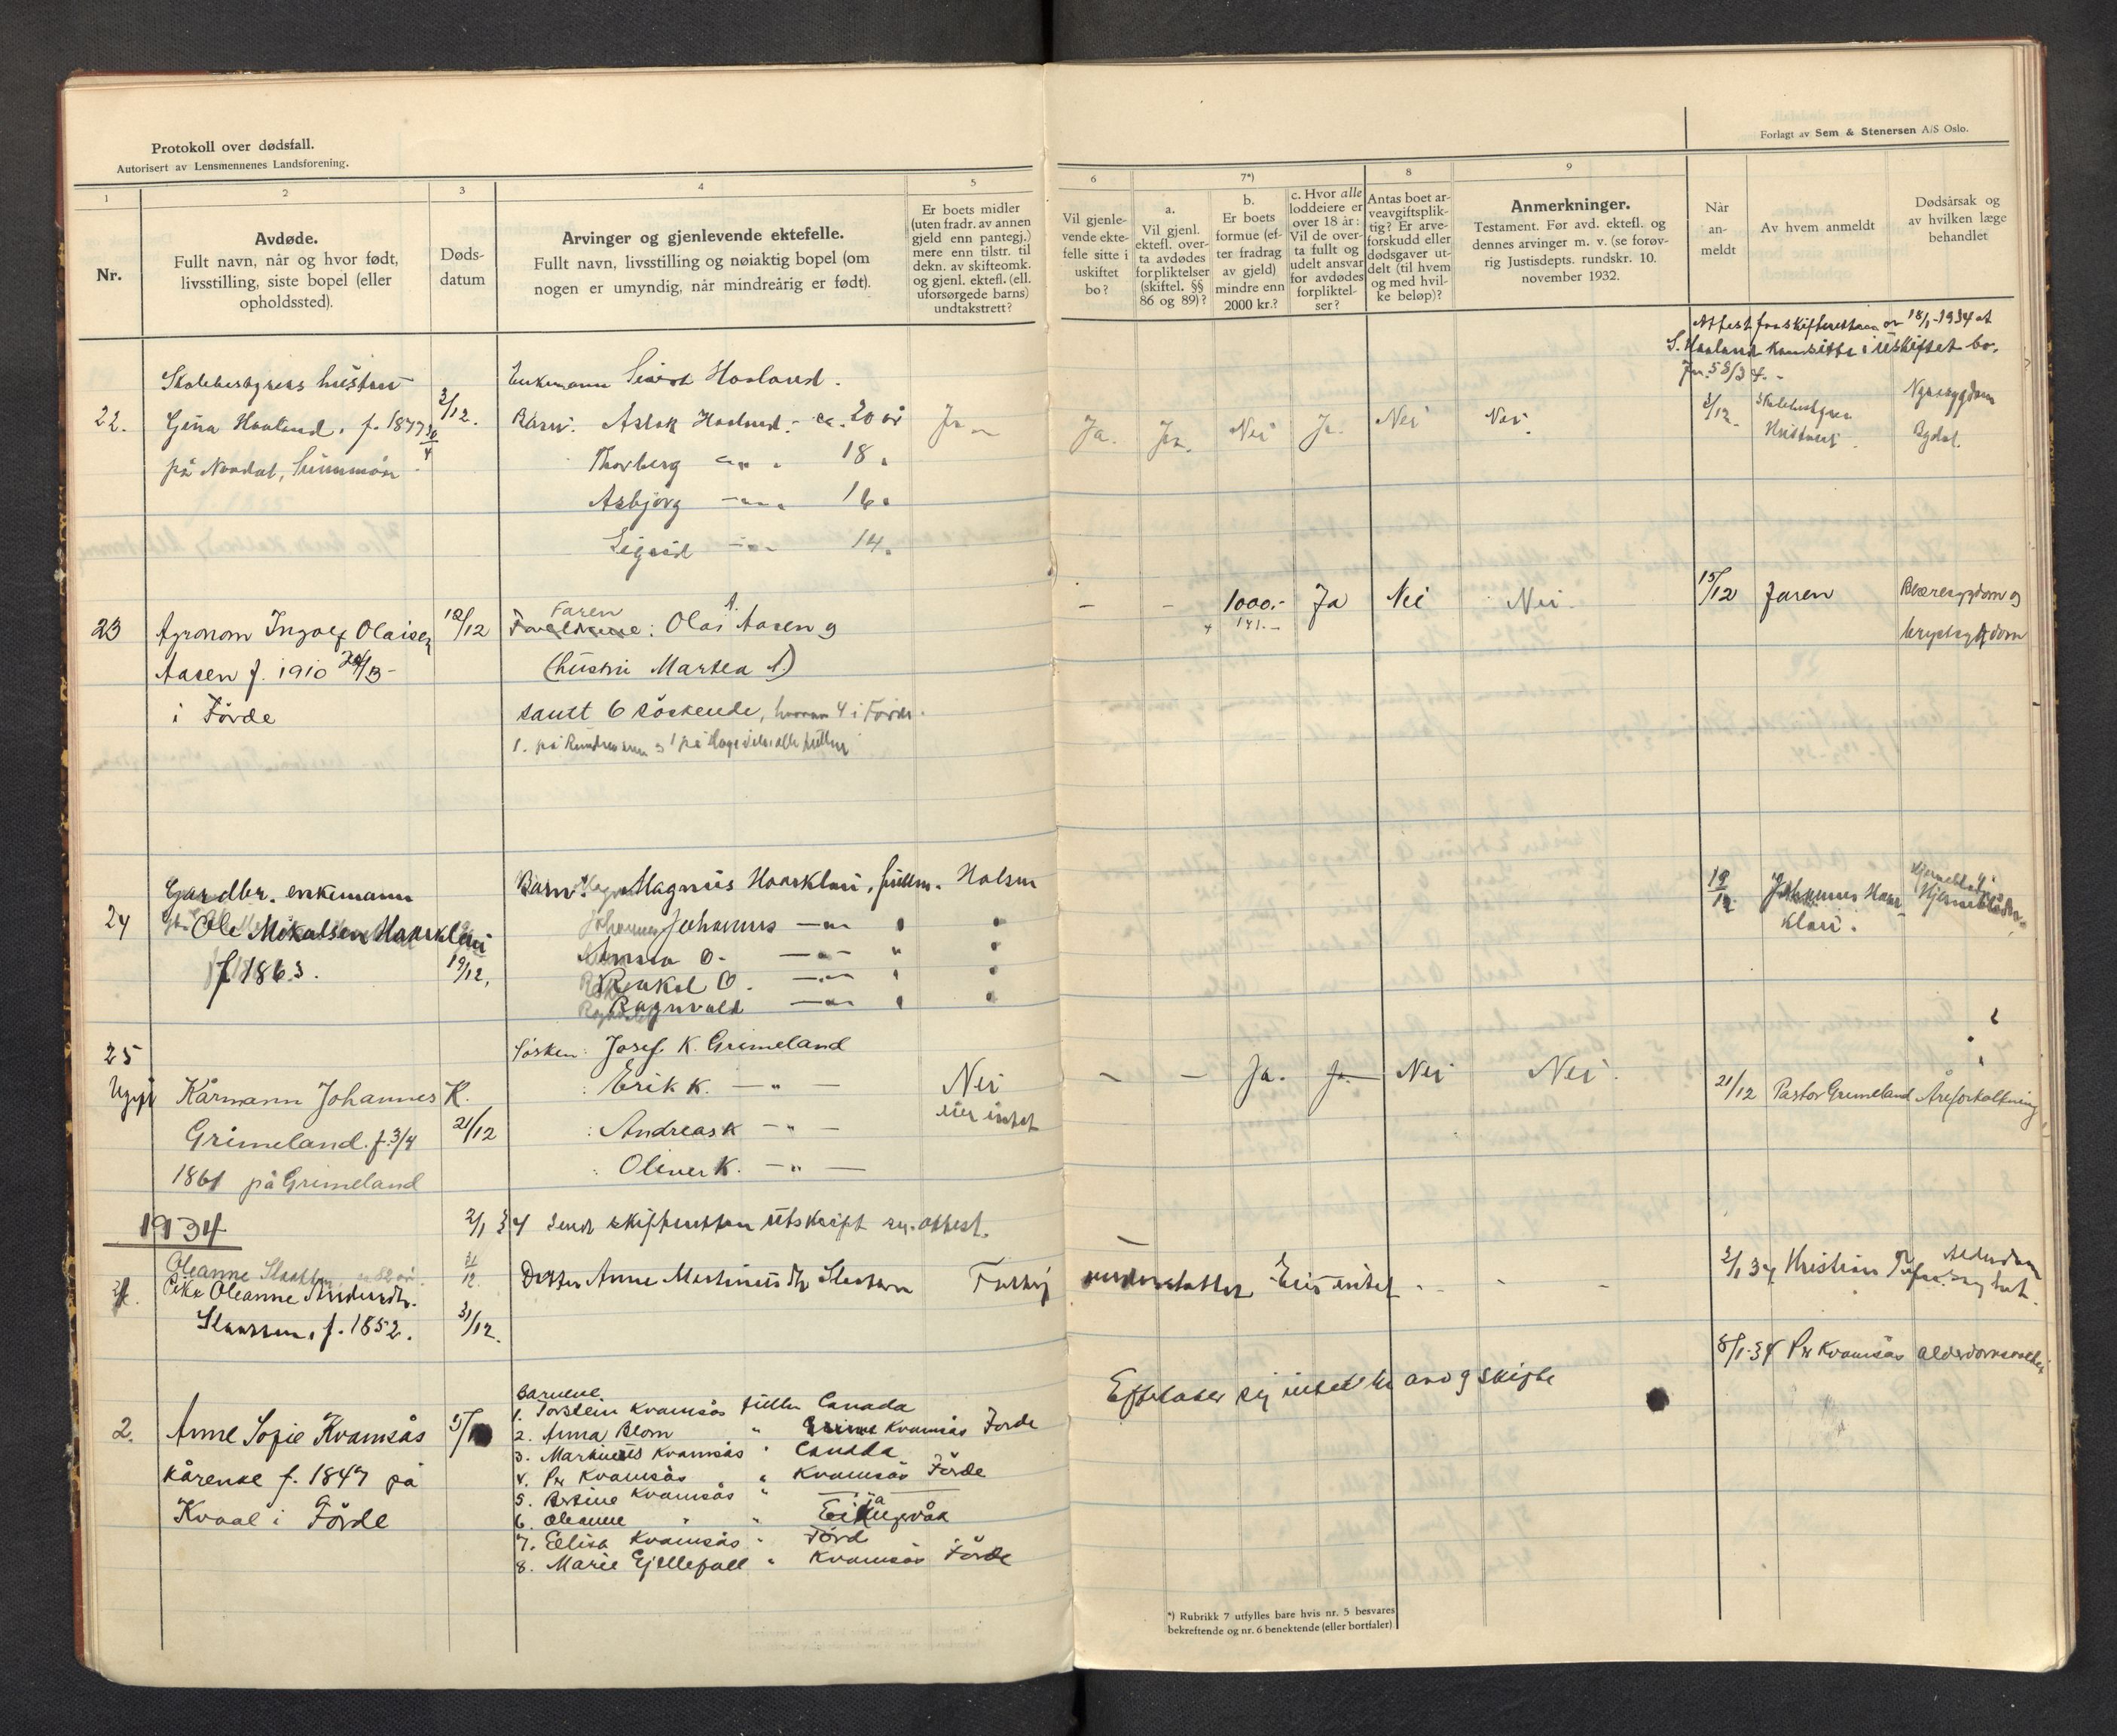 Protokoll over dødsfall.
Autorisert av Lensmennenes Landsforening.
Forlagt av Sem & Stenersen A/S Oslo.
1
2
3
4
5
6
7*)
8
9
Nr.
Avdøde.
Fullt navn, når og hvor født,
livsstilling, siste bopel (eller
opholdssted).
Døds-
datum
Arvinger og gjenlevende ektefelle.
Fullt navn, livsstilling og nøiaktig bopel (om
nogen er umyndig, når mindreårig er født).
Er boets midler
(uten fradr. av annen
gjeld enn pantegj.)
mere enn tilstr. til
dekn. av skifteomk.
og gjenl. ektef. (ell.
uforsørgede barns)
undtakstrett?
Vil gjenle-
vende ekte-
felle sitte i
uskiftet
bo?
a.
Vil gjenl.
ektefl. over-
ta avdødes
forpliktelser
(skiftel. §§
86 og 89)?
b.
Er boets
formue (ef-
ter fradrag
av gjeld)
mindre enn
2000 kr.?
c. Hvor alle
loddeiere er
over 18 år:
Vil de over-
ta fullt og
udelt ansvar
for avdødes
forpliktel-
ser?
Antas boet ar-
veavgiftsplik-
tig? Er arve-
forskudd eller
dødsgaver ut-
delt (til hvem
og med hvil-
ke beløp)?
Anmerkninger.
Testament. Før avd. ektefl. og
dennes arvinger m. v. (se forøv-
rig Justisdepts. rundskr. 10.
november 1932.
Når
an-
meldt
Av hvem anmeldt
Dødsårsak og
av hvilken læge
behandlet
Attest fra skifteretten av 18/1-1934 at
S. Haaland kan sitte i uskiftet bo.
Jnr. 58/34.
22.
Skolebestyrers hustru
Gina Haaland, f. 1877 30/4
på Nordal, Sunnmør
3/12.
Enkemann Sivert Haaland.
Barn: Aslak Haaland - ca. 20 år
Thorberg 18
Asbjörg 16
Sigrid 14
Ja
Ja.
Ja.
Nei
Ja.
Nei
Nei.
3/12.
Skolebestyrer
Nyresygdom
23
Agronom Ingolf Olaisen
Aasen f. 1910
i Förde
12/12
Faren
: Olai A. Aasen og
(hustru Martea A.)
samt 6 söskende, hvorav 4 i Förde.
-
-
1000.-
141.-
Ja
Nei
Nei.
15/12
Faren
og
24
Gardbr. enkemann
Ole Mikalsen Haarklau
f. 1863.
19/12,
Barn: Magnus Haarklau, fullm. Holsen
Johannes
Anna O.
Rakel O.
Ragnvald
19/12
Johannes Haar-
klau.
25
Ugift
Kårmann Johannes K.
Grimeland. f. 3/4
1861 på Grimeland
21/12
Søsken: Josef K. Grimeland
: Erik K. — " —
: Andreas K — " —
: Oliver K. — " —
Nei
eier intet
-
-
Ja.
Ja.
Nei
Nei.
21/12
Pastor Grimeland
Åreforkalkning
1934
2/1 34 Sendt skifteretten utskrift og attest.
Pike Oleanne Andersdtr.
f. 1852.
31/12.
Datter Anne Martinusdtr.
Fattig
understøttet
Eier intet
2/1 34
Kristian
2.
Anne Sofie Kvamsås
kårenke f. 1847 på
Kvaal i Förde
5/1
Barnene
1. Torstein Kvamsås fullm Canada
2. Anna Blom " Kvamsås Förde
3. Martinus Kvamsås " Canada
4. Per Kvamsås " Kvamsås Förde
5. Bertine Kvamsås "
6. Oleanne " "
7. Ellisa Kvamsås " Förd
8. Marie Gjellefall " Kvamsås Förde
Efterlater sig intet til arv og skifte
8/1-34
Per Kvamsås
alderdomssvakhet
*) Rubrikk 7 utfylles bare hvis nr. 5 besvares
bekreftende og nr. 6 benektende (eller bortfaler)